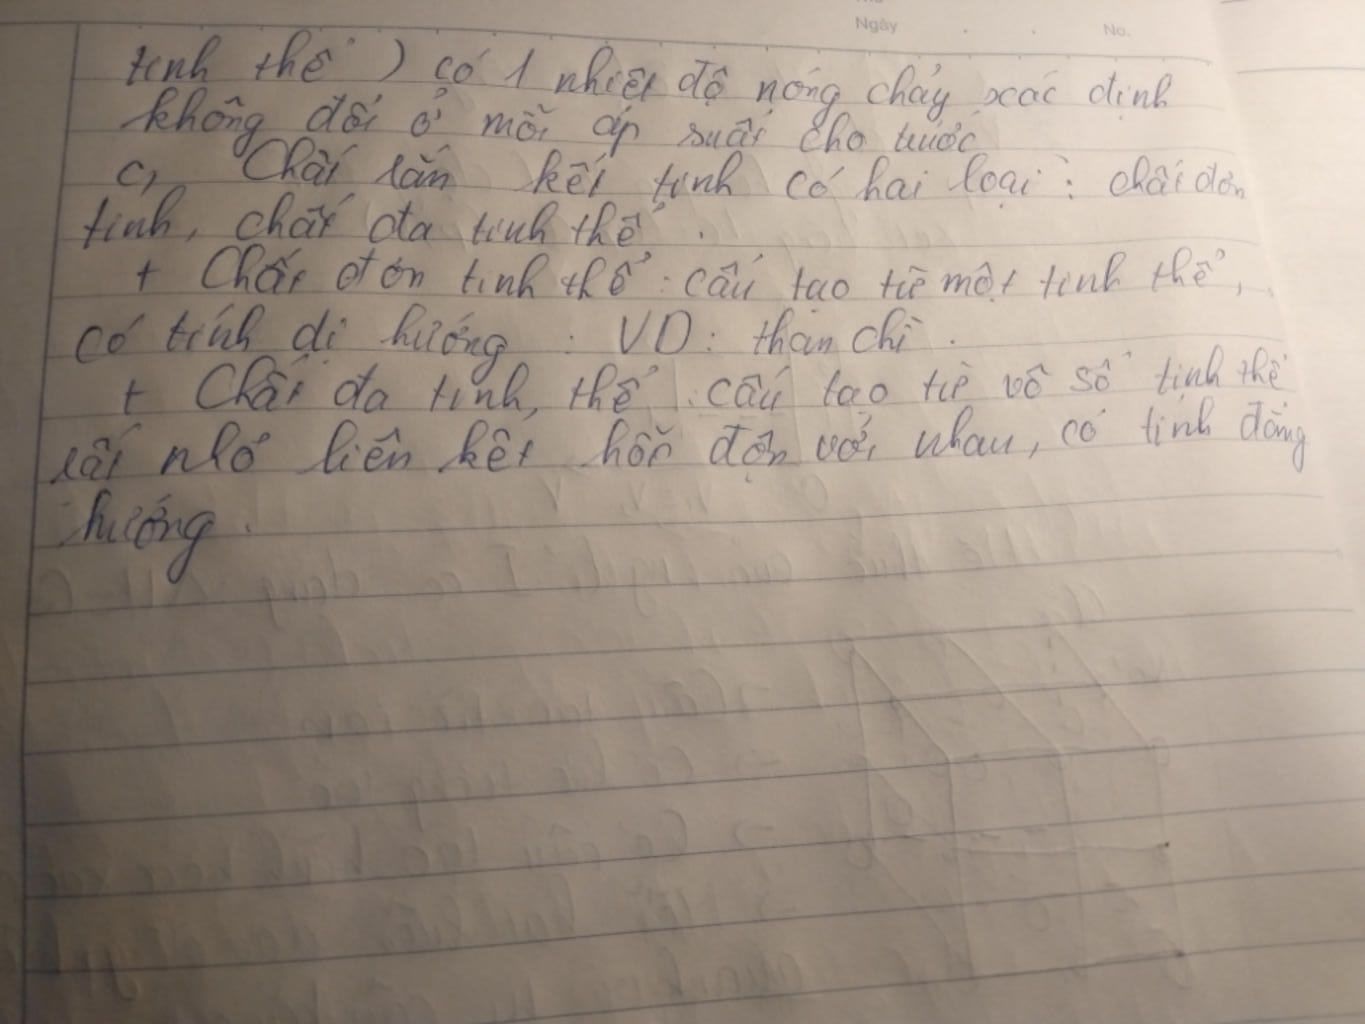 Ngày No.
tinh thể ) có 1 nhiệt độ nóng chảy xác định
không đổi ở mỗi áp suất cho trước
c, Chất rắn kết tinh có hai loại : chất đơn
tinh, chất đa tinh thể .
+ Chất đơn tinh thể : cấu tạo từ một tinh thể,
có tính dị hướng : VD : than chì .
+ Chất đa tinh thể : cấu tạo từ vô số tinh thể
rất nhỏ liên kết hỗn độn với nhau, có tính đẳng
hướng .